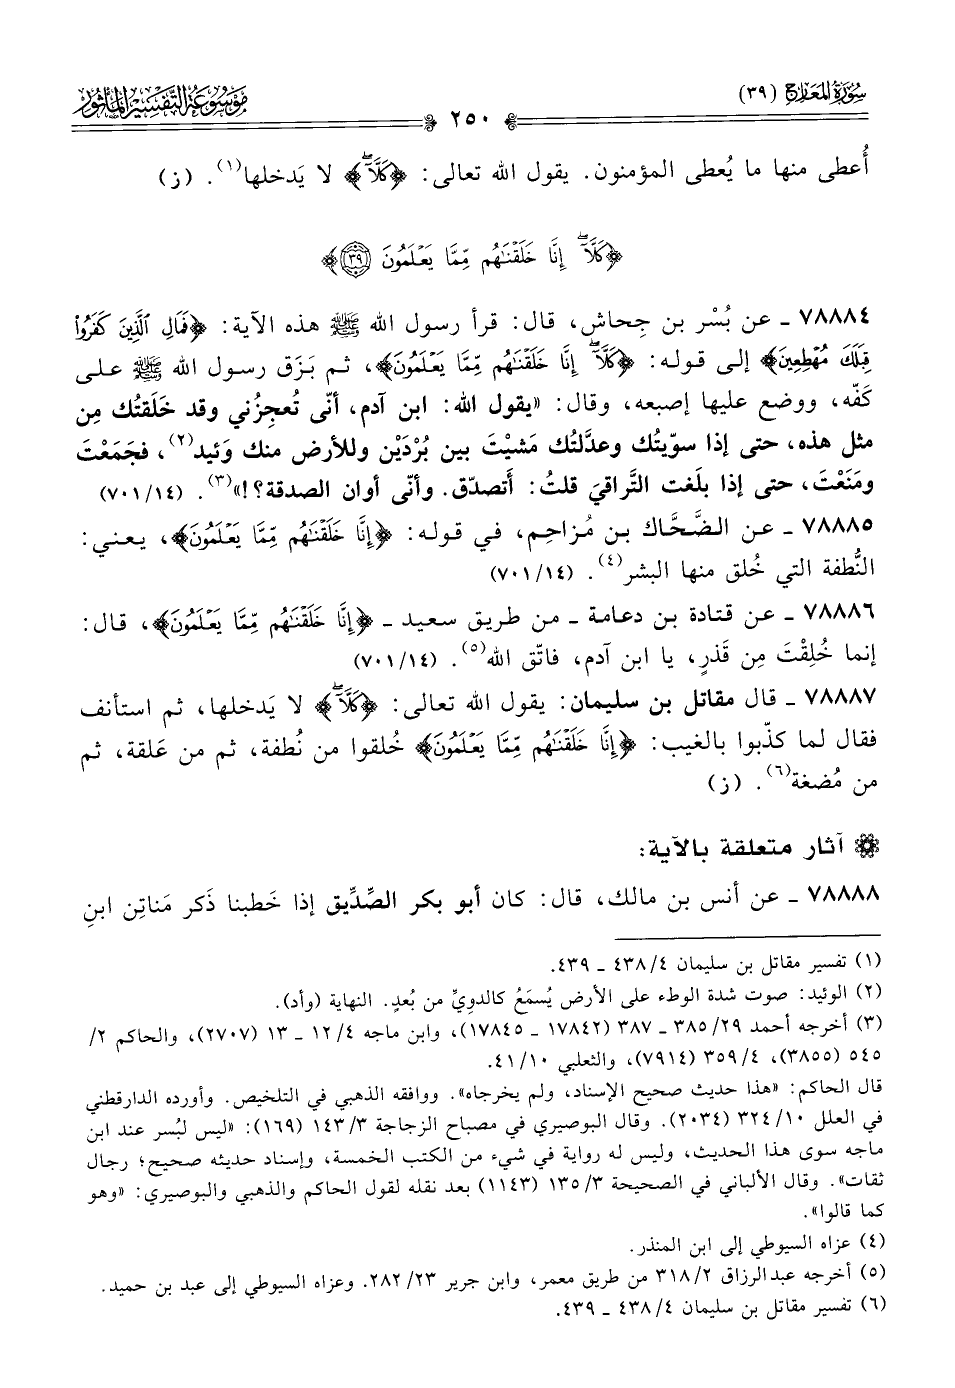 سُورَةُ المَعَارِجِ (٣٩)
٢٥٠
مَوْسُوعَةُ التَّفْسِيرِ المَأْثُور
أُعطى منها ما يُعطى المؤمنون. يقول الله تعالى: ﴿كَلَّآۖ﴾ لا يَدخلها(١). (ز)
﴿كَلَّآۖ إِنَّا خَلَقْنَٰهُم مِّمَّا يَعْلَمُونَ ﴿٣٩﴾﴾
٧٨٨٨٤ ـ عن بُسْر بن جِحاش، قال: قرأ رسول الله ﷺ هذه الآية: ﴿فَالِ ٱلَّذِينَ كَفَرُواْ
قِبَلَكَ مُهْطِعِينَ﴾ إلى قوله: ﴿كَلَّآۖ إِنَّا خَلَقْنَٰهُم مِّمَّا يَعْلَمُونَ﴾، ثم بَزَق رسول الله ﷺ على
كَفّه، ووضع عليها إصبعه، وقال: «يقول الله: ابن آدم، أنّى تُعجِزُني وقد خلَقتُك مِن
مثل هذه، حتى إذا سوّيتُك وعدلَّتُك مَشيْتَ بين بُرْدَيْن وللأرض منك وَئيد(٢)، فجَمَعْتَ
ومَنَعْتَ، حتى إذا بلَغت التَّراقيَ قلتُ: أَتصدّق. وأنّى أوان الصدقة؟!»(٣). (٧٠١/١٤)
٧٨٨٨٥ ـ عن الضَّحَّاك بن مُزاحِم، في قوله: ﴿إِنَّا خَلَقْنَٰهُم مِّمَّا يَعْلَمُونَ﴾، يعني:
النُّطفة التي خُلق منها البشر(٤). (٧٠١/١٤)
٧٨٨٨٦ ـ عن قتادة بن دعامة ـ من طريق سعيد ـ ﴿إِنَّا خَلَقْنَٰهُم مِّمَّا يَعْلَمُونَ﴾، قال:
إنما خُلِقْتَ مِن قَذرٍ، يا ابن آدم، فاتّق الله(٥). (٧٠١/١٤)
٧٨٨٨٧ ـ قال مقاتل بن سليمان: يقول الله تعالى: ﴿كَلَّآۖ﴾ لا يَدخلها، ثم استأنف
فقال لما كذّبوا بالغيب: ﴿إِنَّا خَلَقْنَٰهُم مِّمَّا يَعْلَمُونَ﴾ خُلقوا من نُطفة، ثم من عَلقة، ثم
من مُضغة(٦). (ز)
آثار متعلقة بالآية:
٧٨٨٨٨ ـ عن أنس بن مالك، قال: كان أبو بكر الصِّدِّيق إذا خَطبنا ذَكر مَناتِن ابنِ
(١) تفسير مقاتل بن سليمان ٤٣٨/٤ ـ ٤٣٩.
(٢) الوئيد: صوت شدة الوطء على الأرض يُسمَعُ كالدوِيِّ من بُعدٍ. النهاية (وأد).
(٣) أخرجه أحمد ٣٨٥/٢٩ ـ ٣٨٧ (١٧٨٤٢ ـ ١٧٨٤٥)، وابن ماجه ١٢/٤ ـ ١٣ (٢٧٠٧)، والحاكم ٢/
٥٤٥ (٣٨٥٥)، ٣٥٩/٤ (٧٩١٤)، والثعلبي ٤١/١٠.
قال الحاكم: «هذا حديث صحيح الإسناد، ولم يخرجاه». ووافقه الذهبي في التلخيص. وأورده الدارقطني
في العلل ٣٢٤/١٠ (٢٠٣٤). وقال البوصيري في مصباح الزجاجة ١٤٣/٣ (١٦٩): «ليس لبُسر عند ابن
ماجه سوى هذا الحديث، وليس له رواية في شيء من الكتب الخمسة، وإسناد حديثه صحيح؛ رجال
ثقات». وقال الألباني في الصحيحة ١٣٥/٣ (١١٤٣) بعد نقله لقول الحاكم والذهبي والبوصيري: «وهو
كما قالوا».
(٤) عزاه السيوطي إلى ابن المنذر.
(٥) أخرجه عبدالرزاق ٣١٨/٢ من طريق معمر، وابن جرير ٢٨٢/٢٣. وعزاه السيوطي إلى عبد بن حميد.
(٦) تفسير مقاتل بن سليمان ٤٣٨/٤ ـ ٤٣٩.